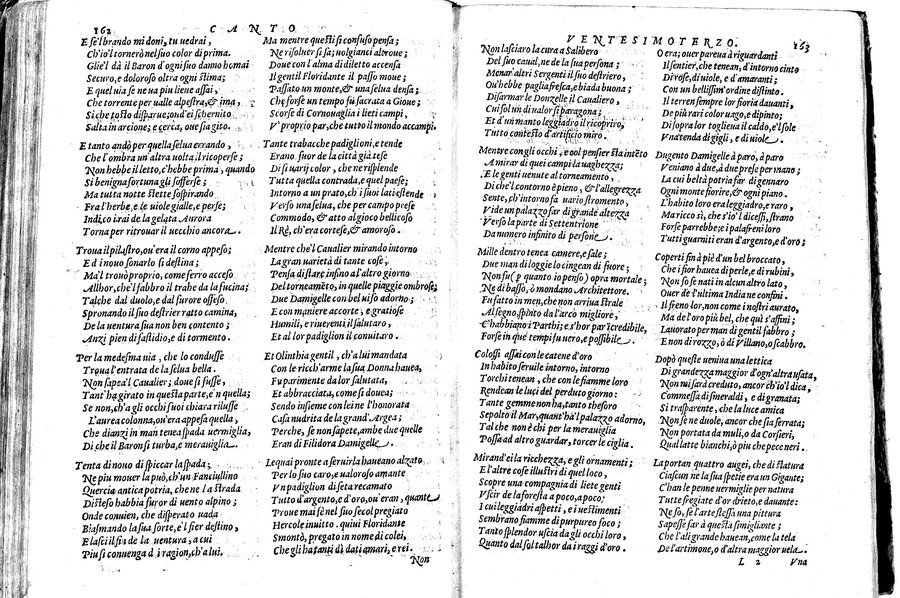 162 CANTO
E se'l brando mi doni, tu uedrai,
Ch'io'l tornerò nel suo color di prima.
Glie'l dà il Baron d'ogni suo danno homai
Securo, e doloroso oltra ogni stima;
E quel uia se ne ua piu lieue assai,
Che torrente per ualle alpestra, & ima,
Si che tosto disparue; ond'ei schernito
Salta in arcione; e cerca, oue sia gito.
E tanto andò per quella selua errando,
Che l'ombra un'altra uolta il ricoperse;
Non hebbe il letto, c'hebbe prima, quando
Si benigna fortuna gli sofferse;
Ma tutta notte stette sospirando
Fra l'herbe, e le uiole gialle, e perse;
Indi, co i rai de la gelata Aurora
Torna per ritrouar il uecchio ancora.
Troua il pilastro, ou'era il corno appeso;
Ed i nouo sonarlo si destina;
Ma'l trouò proprio, come ferro acceso
Allhor, che'l fabbro il trahe da la fucina;
Talche dal duolo, e dal furore offeso
Spronando il suo destrier ratto camina,
De la uentura sua non ben contento;
Anzi pien di fastidio, e di tormento.
Per la medesma uia, che lo condusse
Troua l'entrata de la selua bella.
Non sapea'l Caualier; doue si fusse,
Tant'ha girato in questa parte, e'n quella;
Se non, ch'a gli occhi suoi chiara rilusse
L'aurea colonna, ou'era appesa quella,
Che dianzi in man tenea spada uermiglia,
Di che il Baron si turba, e merauiglia.
Tenta di nouo di spiccar la spada;
Ne piu mouer la può, ch'un Fanciullino
Quercia antica potria, che ne l a strada
Disteso habbia furor di uento alpino;
Onde conuien, che disperato uada
Biasmando la sua sorte, e'l fier destino,
E lasci il fin de la uentura, a cui
Piu si conuenga d i ragion, ch'a lui.
Ma mentre questi si confuso pensa;
Ne risoluer si sa; uolgianci altroue;
Doue con l'alma di diletto accensa
Il gentil Floridante il passo moue;
Passato un monte, & una selua densa;
Che forse un tempo fu sacrata a Gioue;
Scorse di Cornouaglia i lieti campi,
V' proprio par, che tutto il mondo accampi.
Tante trabacche padiglioni, e tende
Erano fuor de la città già tese
Di si uarij color, che ne risplende
Tutta quella contrada, e quel paese;
Intorno a un prato, ch'i suoi lati estende
Verso una selua, che per campo prese
Commodo, & atto al gioco bellicoso
Il Rè, ch'era cortese, & amoroso.
Mentre che'l Caualier mirando intorno
La gran uarietà di tante cose,
Pensa di stare infino al'altro giorno
Del torneamēto, in quelle piaggie ombrose;
Due Damigelle con bel uiso adorno;
E con maniere accorte, e gratiose
Humili, e riuerenti il salutaro,
Et al lor padiglion il conuitaro.
Et Olinthia gentil, ch'a lui mandata
Con le ricch'arme la sua Donna hauea,
Fu parimente da lor salutata,
Et abbracciata, come si douea;
Sendo insieme con lei ne l'honorata
Casa nudrita de la grand'Argea;
Perche, se non sapete, ambe due quelle
Eran di Filidora Damigelle.
Lequai pronte a seruirla haueano alzato
Per lo suo caro, e ualoroso amante
Vn padiglion di seta recamato
Tutto d'argento, e d'oro, ou'eran, quante
Proue mai fè nel suo secol pregiato
Hercole inuitto. quiui Floridante
Smontò, pregato in nome di colei,
Che gli ha tanti dì dati amari, e rei.
Non
VENTESIMOTERZO. 163
Non lasciaro la cura a Salibero
Del suo caual, ne de la sua persona;
Menar' altri Sergenti il suo destriero,
Ou'hebbe paglia fresca, e biada buona;
Disarmar le Donzelle il Caualiero,
Cui sol un di ualor si paragona;
Et d'un manto leggiadro il ricopriro,
Tutto contesto d'artificio miro.
Mentre con gli occhi, e col pensier sta intēto
A mirar di quei campi la uaghezza;
E le genti uenute al torneamento,
Di che'l contorno è pieno, & l'allegrezza
Sente, ch'intorno fa uario stromento,
Vide un palazzo far di grande altezza
Verso la parte di Settentrione
Da numero infinito di persone.
Mille dentro tenea camere, e sale;
Due man di loggie lo cingean di fuore;
Non fu (p quanto io penso) opra mortale;
Ne di basso, ò mondano Architettore.
Fu fatto in men, che non arriua strale
Al segno, spinto da l'arco migliore,
C'habbiano i Parthi; e s'hor par īcredibile,
Forse in que' tempi fu uero, e possibile.
Colossi assai con le catene d'oro
In habito seruile intorno, intorno
Torchi tenean, che con le fiamme loro
Rendean le luci del perduto giorno:
Tante gemme non ha, tanto thesoro
Sepolto il Mar, quant'hà'l palazzo adorno,
Tal che non è chi per la merauiglia
Possa ad altro guardar, torcer le ciglia.
Mirand'ei la ricchezza, e gli ornamenti;
E l'altre cose illustri di quel loco,
Scopre una compagnia di liete genti
Vscir de la foresta a poco, a poco;
I cui leggiadri aspetti, e i uestimenti
Sembrano fiamme di purpureo foco;
Tanto splendor uscia da gli occhi loro,
Quanto dal sol talhor da i raggi d'oro.
O era; ouer pareua à riguardanti
Il sentier, che tenean, d'intorno cinto
Di rose, di uiole, e d'amaranti;
Con un bellissim'ordine distinto.
Il terren sempre lor fioria dauanti,
De più rari color uago, e dipinto;
Di sopra lor toglieua il caldo, e'l sole
Vna tenda di gigli, e di uiole.
Dugento Damigelle à paro, à paro
Veniano à due, à due prese per mano;
La cui beltà potria far di gennaro
Ogni monte fiorire, & ogni piano.
L'habito loro era leggiadro, e raro,
Ma ricco sì, che s'io'l dicessi, strano
Forse parrebbe; e i palafreni loro
Tutti guarniti eran d'argento, e d'oro;
Coperti fin à piè d'un bel broccato,
Che i fior hauea di perle, e di rubini,
Non so se nati in alcun altro lato,
Ouer dè l'ultima India ne confini.
Il freno lor, non come i nostri aurato,
Ma de l'oro più bel, che quà s'affini;
Lauorato per man di gentil fabbro;
E non di rozzo, ò di Villano, o scabro.
Dopò queste ueniua una lettica
Di grandezza maggior d'ogn'altra usata,
Non mi sarà creduto, ancor ch'io'l dica,
Commessa di smeraldi, e di granata;
Si trasparente, che la luce amica
Non se ne duole, ancor che sia serrata;
Non portata da muli, o da Corsieri,
Qual latte bianchi, ò più che pece neri.
La portan quattro augei, che di statura
Ciascun ne la sua spetie era un Gigante;
C'han le penne uermiglie per natura
Tutte fregiate d'or dietro, e dauante:
Ne sò, se l'arte stessa una pittura
Sapesse far à questa simigliante;
Che l'ali grande hauean, come la tela
De l'artimone, o d'altra maggior uela.
L 2 Vna